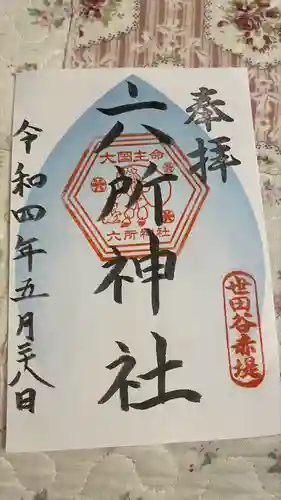 奉拝
六所神社
大国主命
六所神社
世田谷赤堤
令和四年五月二十八日